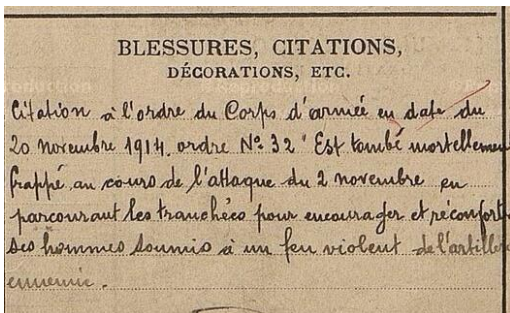 BLESSURES, CITATIONS,
DÉCORATIONS, ETC.
Citation à l'ordre du Corps d'armée en date du
20 novembre 1914. ordre N° 32 "Est tombé mortellemen
frappé au cours de l'attaque du 2 novembre en
parcourant les tranchées pour encourager et réconfort
ses hommes soumis à un feu violent de l'artiller
ennemie.